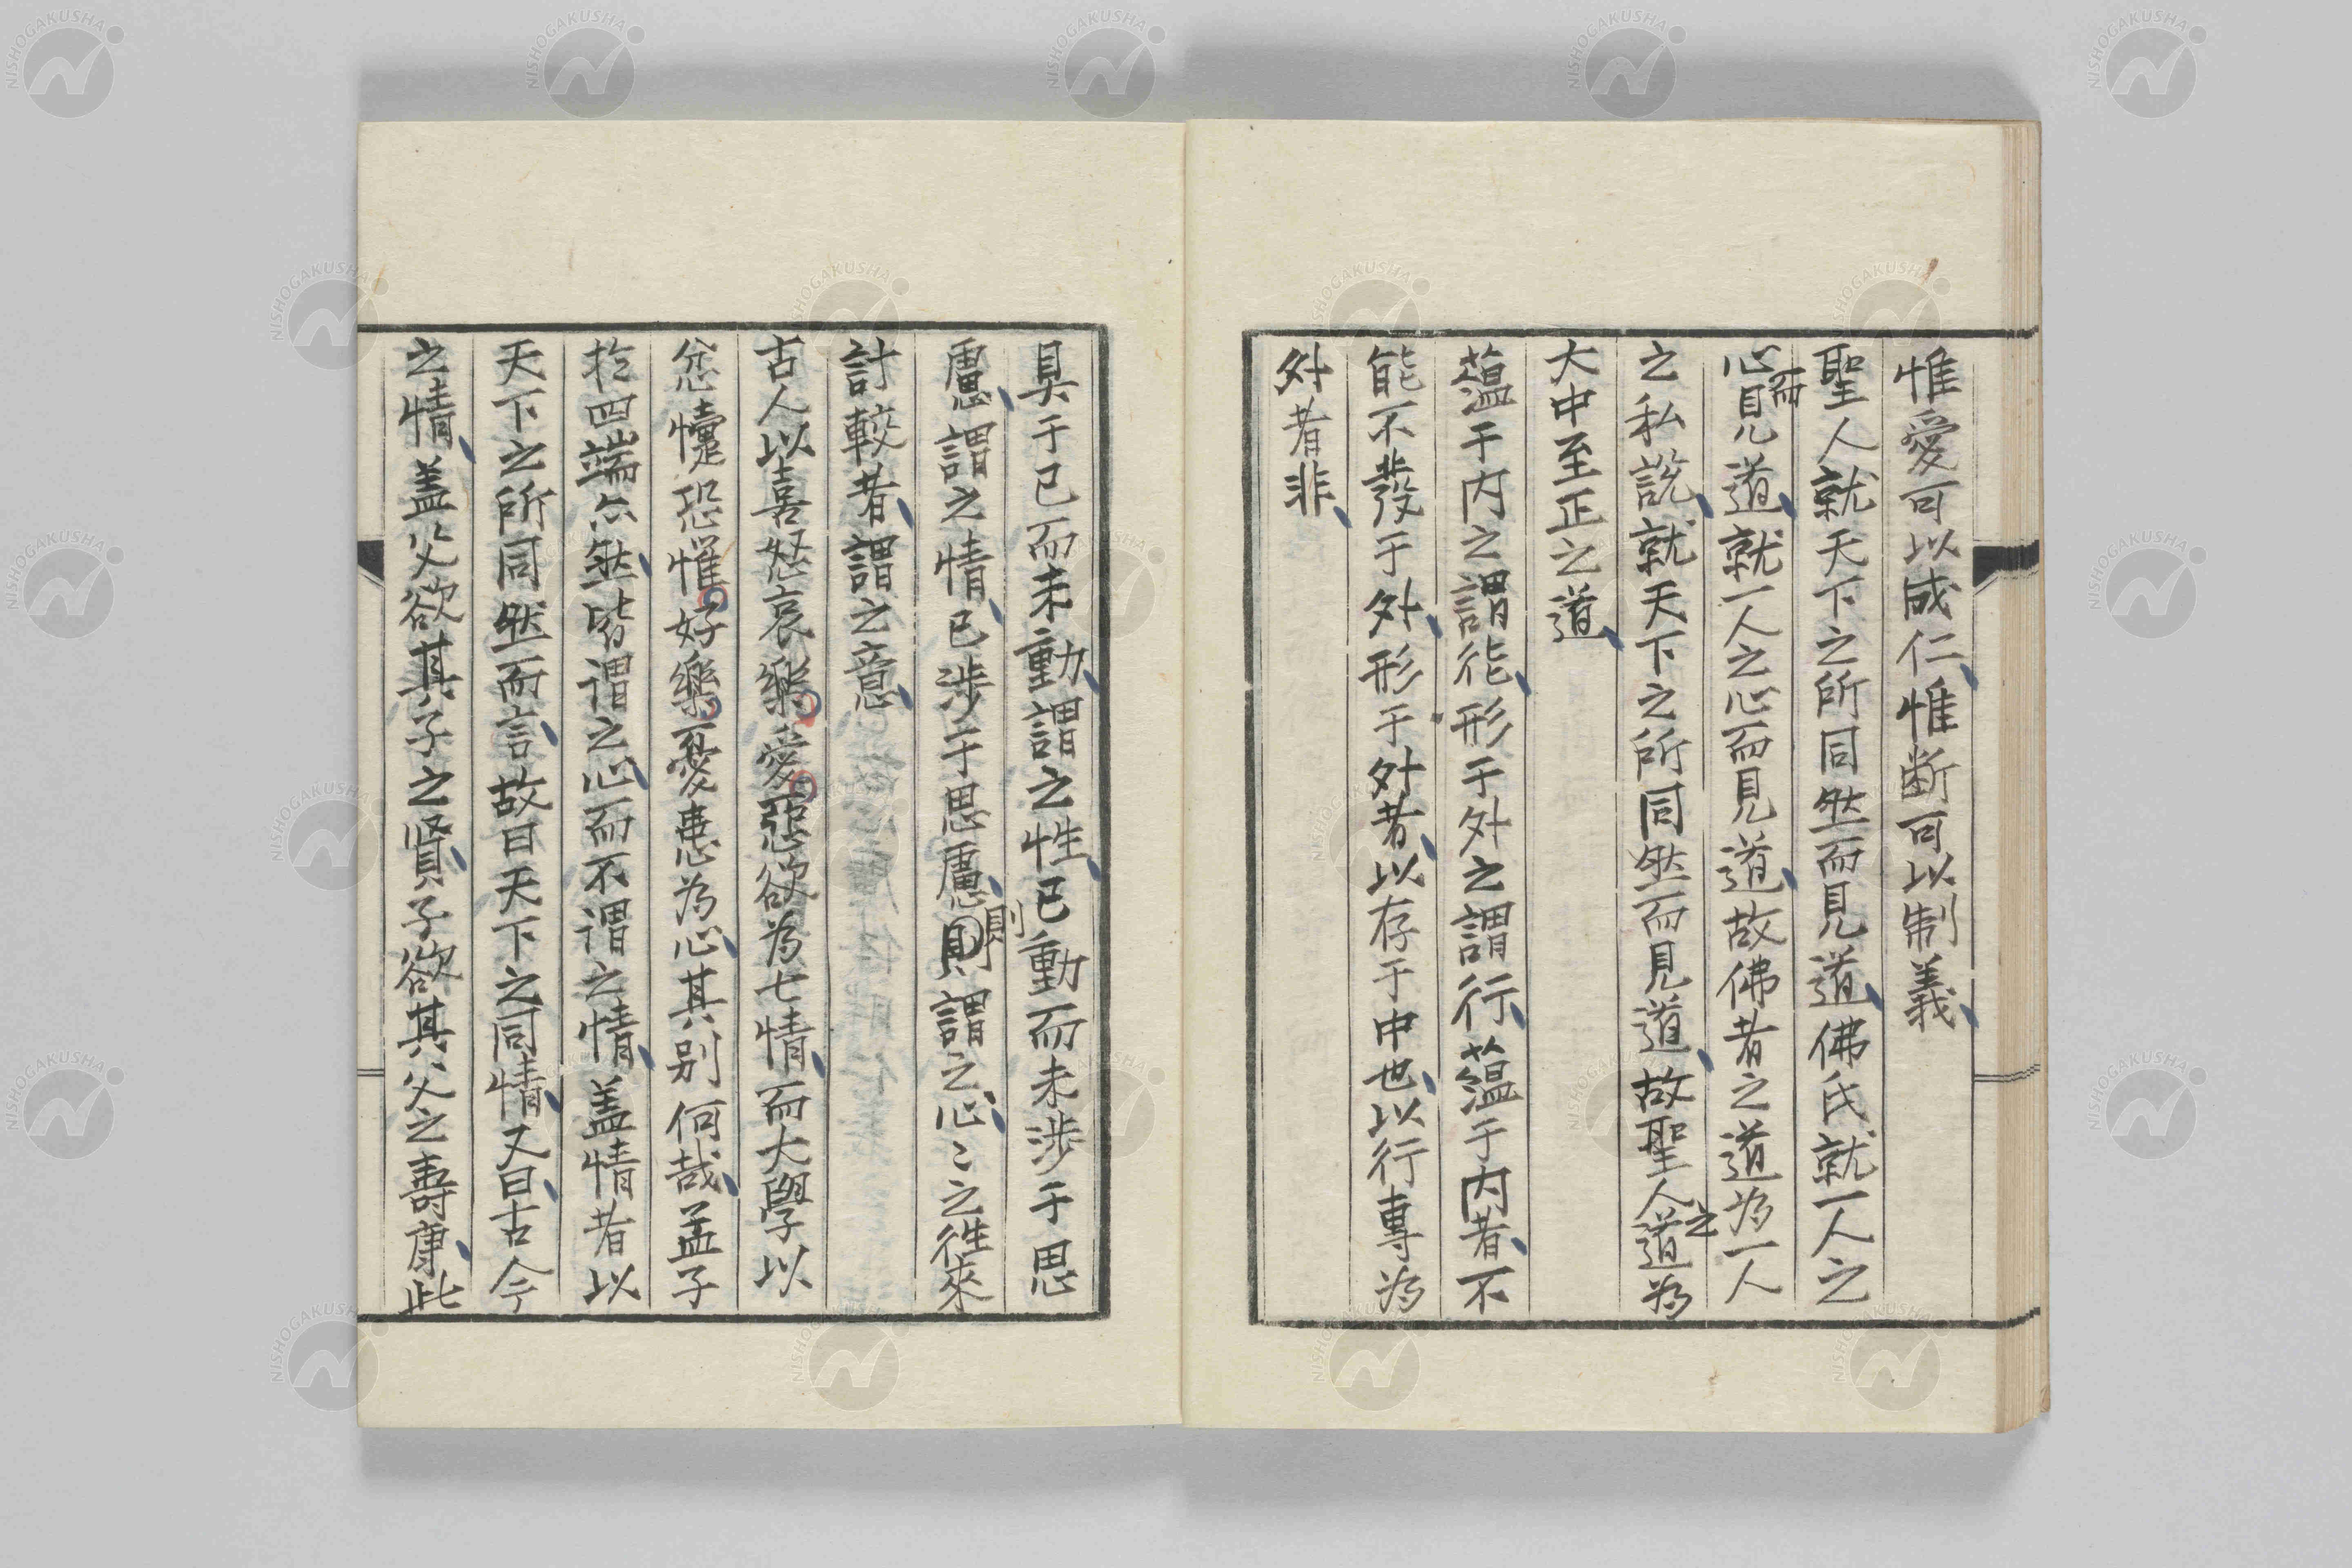 惟愛可以成仁、惟断可以制義、
聖人就天下之所同然而見道、佛氏就一人之
心而見道、就一人之心而見道、故佛者之道為一人
之私說、就天下之所同然而見道、故聖人之道為
大中至正之道、
蘊于内之謂能、形于外之謂行、蘊于内者、不
能不發于外、形于外者、以存于中也、以行專為
外者非、
具于已而未動、謂之性、已動而未涉于思
慮、謂之情、已涉于思慮、則謂之心、〻之徃來
計較者、謂之意、
古人以喜怒哀樂愛惡欲為七情、而大學以
忿懥恐懼好樂憂患為心、其別何哉、孟子
於四端亦然、皆谓之心、而不谓之情、盖情者以
天下之所同然而言、故曰天下之同情、又曰、古今
之情、盖父欲其子之賢、子欲其父之壽康、此
NISHOGAKUSHA